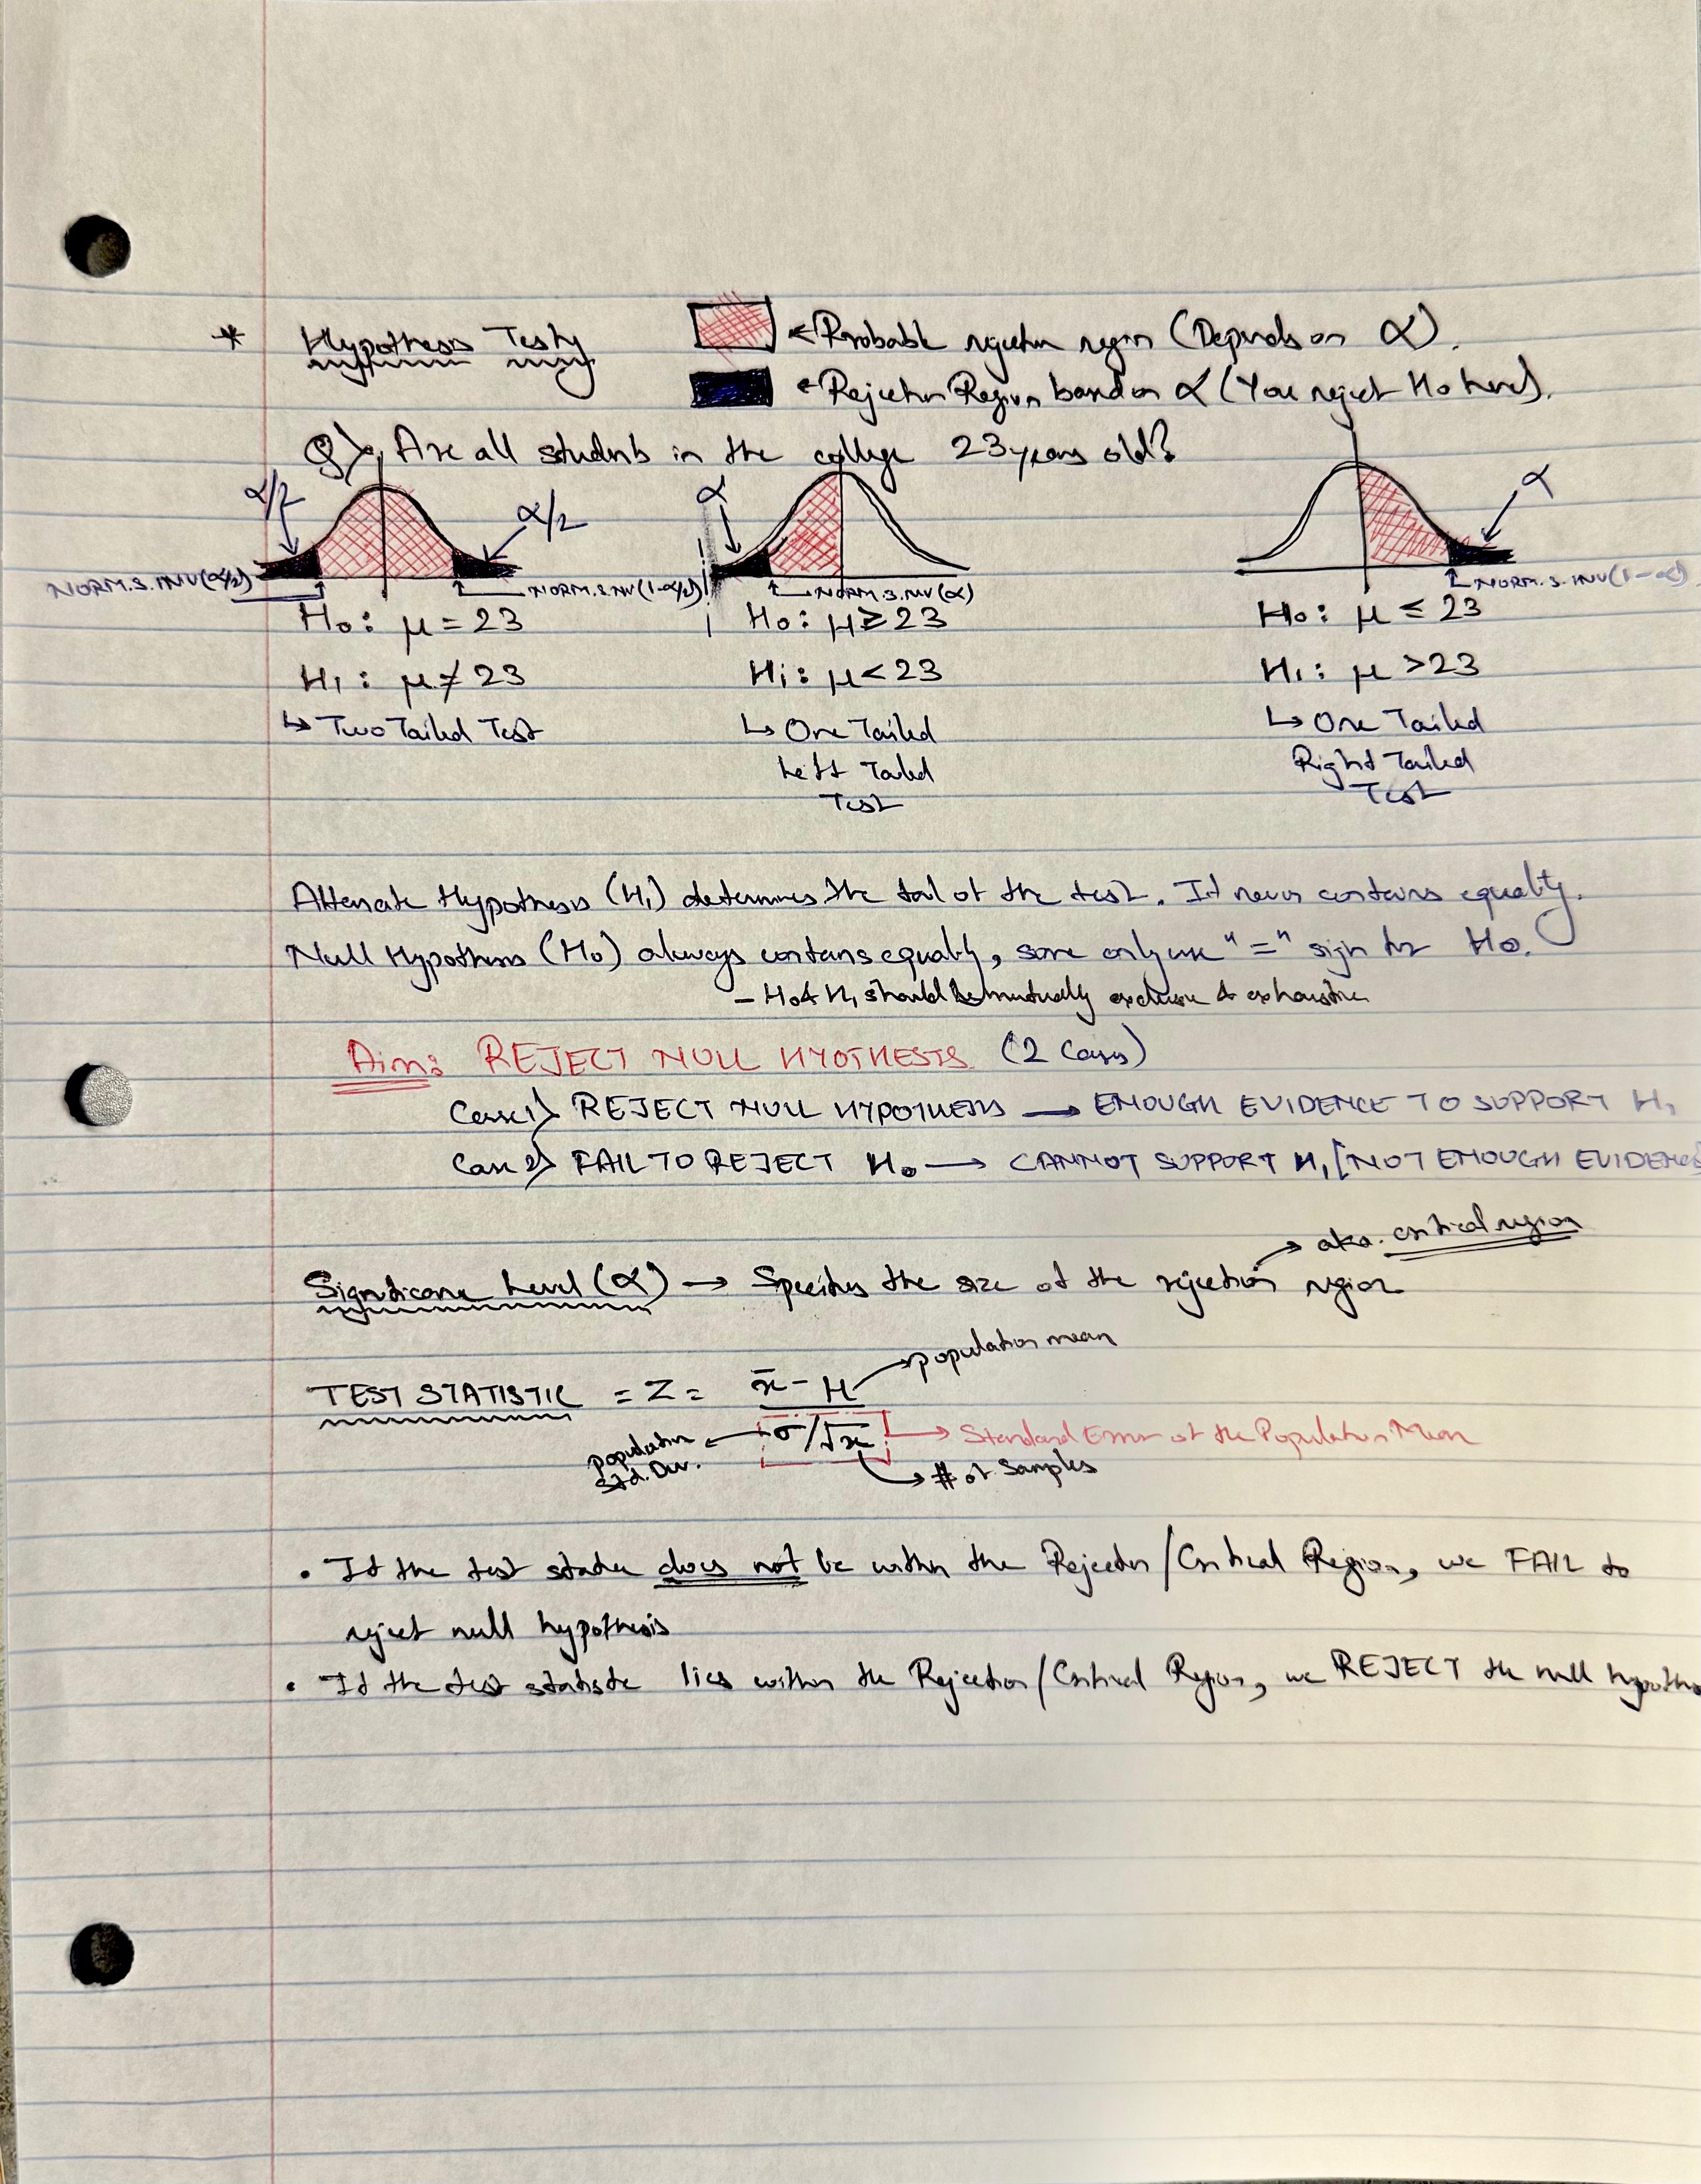 * Hypothesis Testing
← Probable rejection region (Depends on α).
← Rejection Region based on α (You reject H0 here).
Q) Are all students in the college 23 years old?
α/2
α/2
α
α
NORM.S.INV(α/2)
NORM.S.INV(1-α/2)
NORM.S.INV(α)
NORM.S.INV(1-α)
H0: μ = 23
H0: μ ≥ 23
H0: μ ≤ 23
H1: μ ≠ 23
H1: μ < 23
H1: μ > 23
↳ Two Tailed Test
↳ One Tailed
Left Tailed
Test
↳ One Tailed
Right Tailed
Test
Alternate Hypothesis (H1) determines the tail of the test. It never contains equality.
Null Hypothesis (H0) always contains equality, some only use "=" sign for H0.
- H0 & H1 should be mutually exclusive & exhaustive
Aim: REJECT NULL HYOTHESIS (2 Cases)
Case 1) REJECT NULL HYPOTHESIS → ENOUGH EVIDENCE TO SUPPORT H1
Case 2) FAIL TO REJECT H0 → CANNOT SUPPORT H1 [NOT ENOUGH EVIDENCE
aka. critical region
Significance Level (α) → Specifies the size of the rejection region
population mean
TEST STATISTIC = Z = x̄ - μ
σ/√n
→ Standard Error of the Population Mean
population
Std. Dev.
# of Samples
• If the test statistic does not lie within the Rejection/Critical Region, we FAIL to
reject null hypothesis
• If the test statistic lies within the Rejection/Critical Region, we REJECT the null hypothe